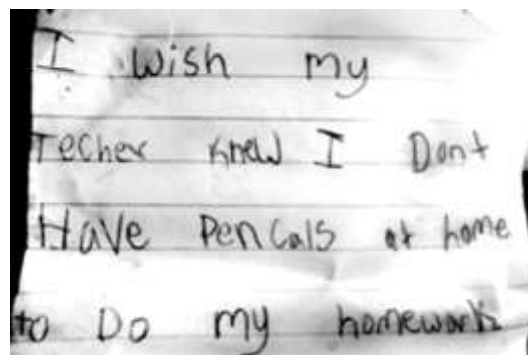 I wish my
Techer knew I Dont
Have pencals at home
to Do my homework